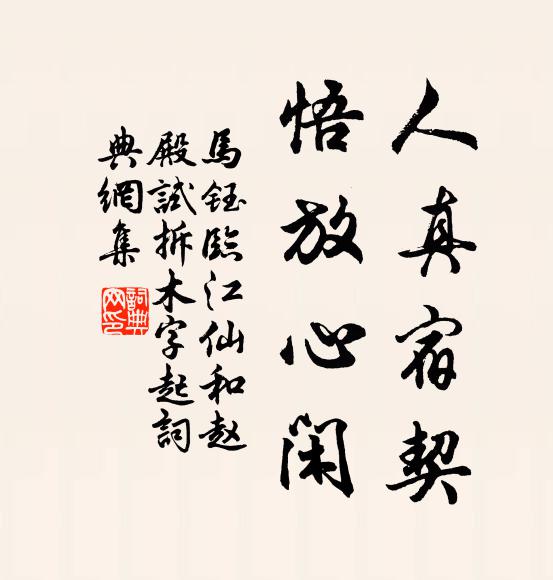 人真宿契
悟放心闲
馬鈺臨江仙和赵
殿試拆木字起詞
典網集
詞典網印